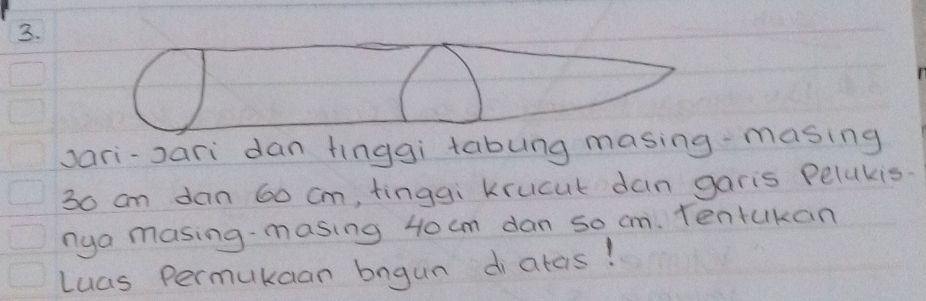 3.
Jari-Jari dan tinggi tabung masing-masing
30 cm dan 60 cm, tinggi krucut dan garis Pelukis-
nya masing-masing 40 cm dan 50 cm. Tentukan
Luas Permukaan bngun di atas!